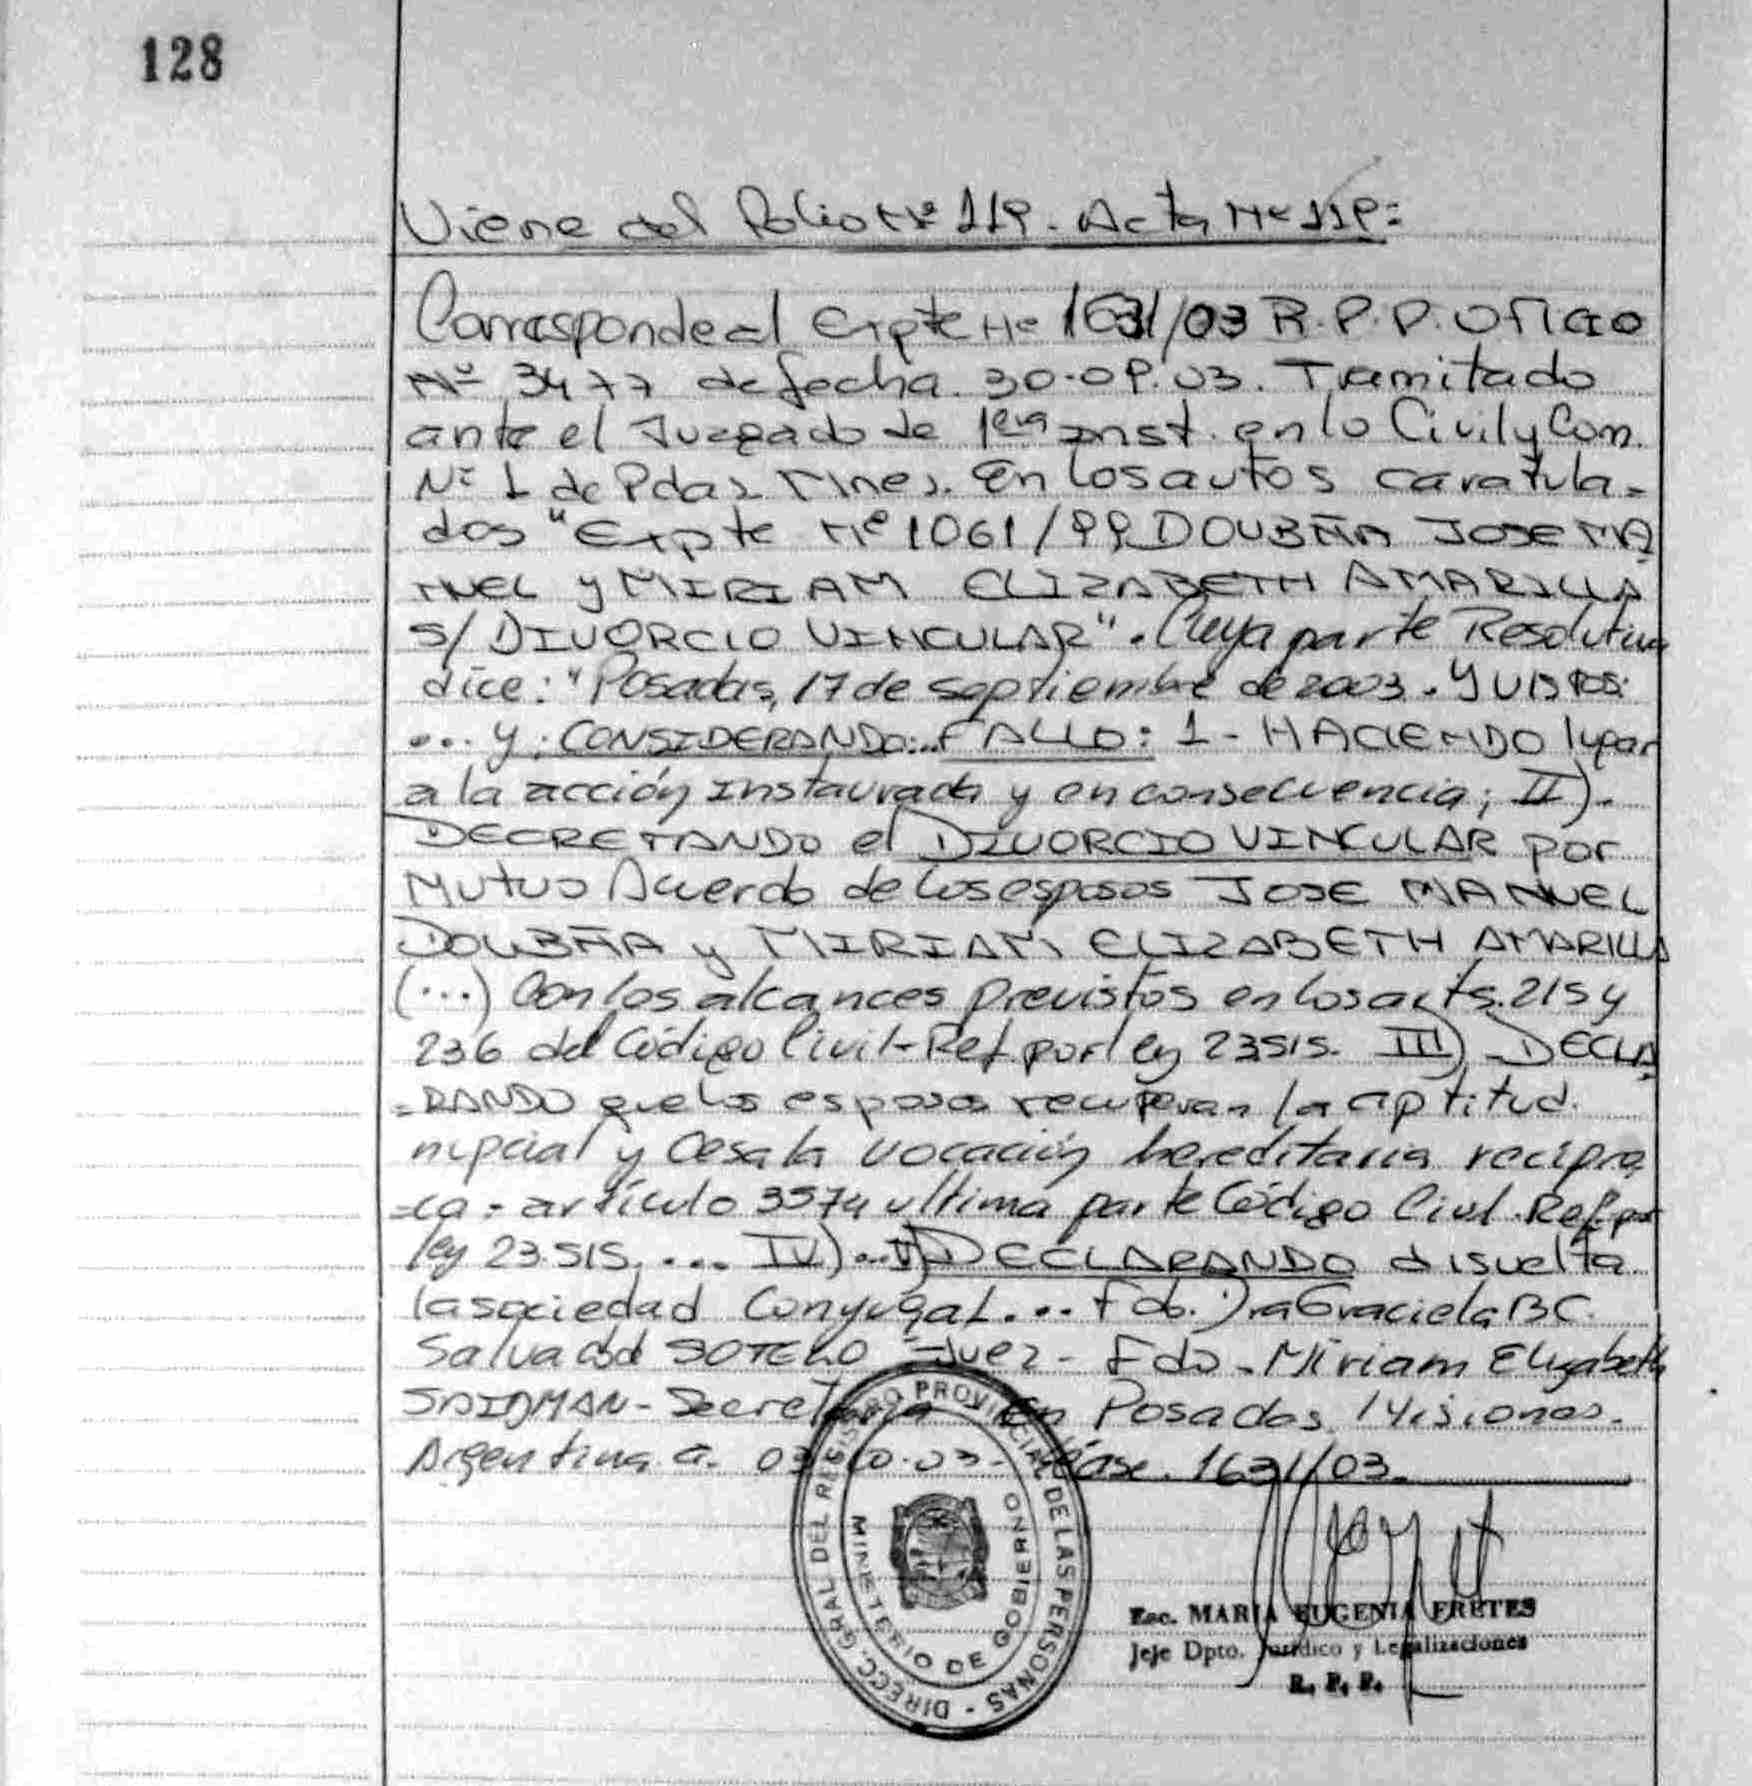 128
Viene del Folio Nº 119. Acta Nº 119:
Corresponde al Expte Nº 1631/03 R.P.P. Oficio
Nº 3477 de fecha 30.09.03. Tramitado
ante el Juzgado de 1era Inst. en lo Civil y Com.
Nº 1 de Pdas Mnes. En los autos caratula-
dos "Expte Nº 1061/99 DOUBÑA JOSE MA
NUEL y MIRIAM ELIZABETH AMARILLA
S/ DIVORCIO VINCULAR". Cuya parte Resolutiva
dice: "Posadas, 17 de septiembre de 2003. Y VISTOS:
... y: CONSIDERANDO:.. FALLO: 1- HACIENDO lugar
a la acción Instaurada y en consecuencia; II).
DECRETANDO el DIVORCIO VINCULAR por
Mutuo Acuerdo de los esposos JOSE MANUEL
DOUBÑA y MIRIAM ELIZABETH AMARILLA
(...) Con los alcances previstos en los arts. 215 y
236 del Código Civil-Ref por ley 23515. III) DECLA
-RANDO que los esposos recuperan la aptitud
nupcial y cesa la vocación hereditaria recípro
-ca - artículo 3574 ultima parte Código Civil. Ref. por
ley 23.515. ... IV)...V) DECLARANDO disuelta
la sociedad Conyugal... Fdo. Dra Graciela BC.
Salvador SOTELO - Juez - Fdo - Miriam Elizabeth
SAIDMAN - Secretaria En Posadas, Misiones.
Argentina a. 03.10.03- 1631/03.
DIRECC. GRAL DEL REGISTRO PROVINCIAL DE LAS PERSONAS -
MINISTERIO DE GOBIERNO
Esc. MARIA EUGENIA FRETES
Jefe Dpto. Jurídico y Legalizaciones
R. P. P.